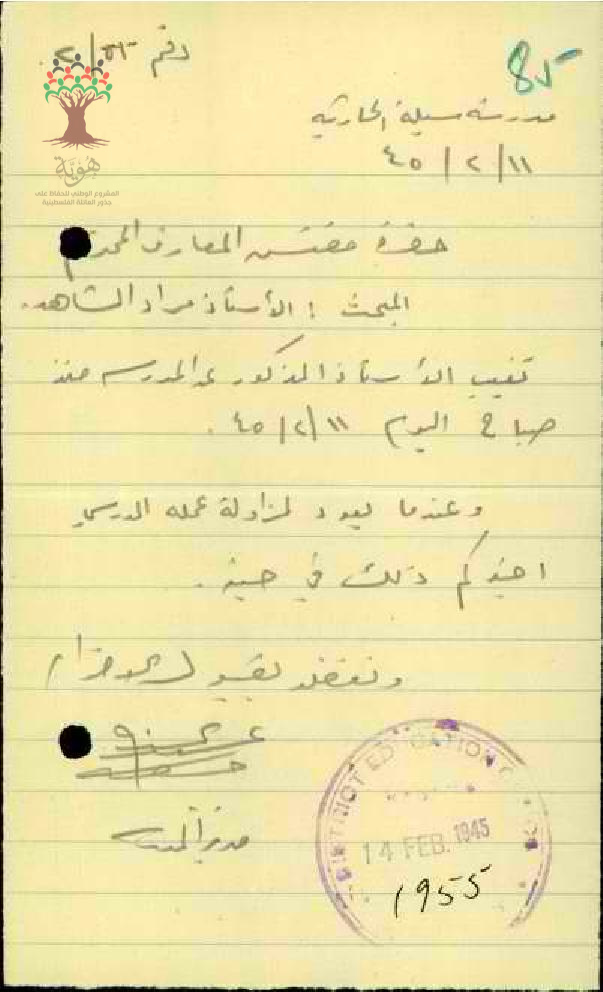 رقم ٢/٥٢
85
مدرسة سيلة الحارثية
٤٥/٢/١١
هُويّة
المشروع الوطني للحفاظ على
جذور العائلة الفلسطينية
حضرة مفتش المعارف المحترم
المبحث : الأستاذ مراد الشاهد.
تغيب الأستاذ المذكور عن المدرسه منذ
صباح اليوم ٤٥/٢/١١ .
وعندما يعود لمزاولة عمله المدرسي
اخبركم ذلك في حينه .
وتفضلوا بقبول الاحترام
مدير المدرسه
DISTRICT EDUCATION
14 FEB. 1945
1955